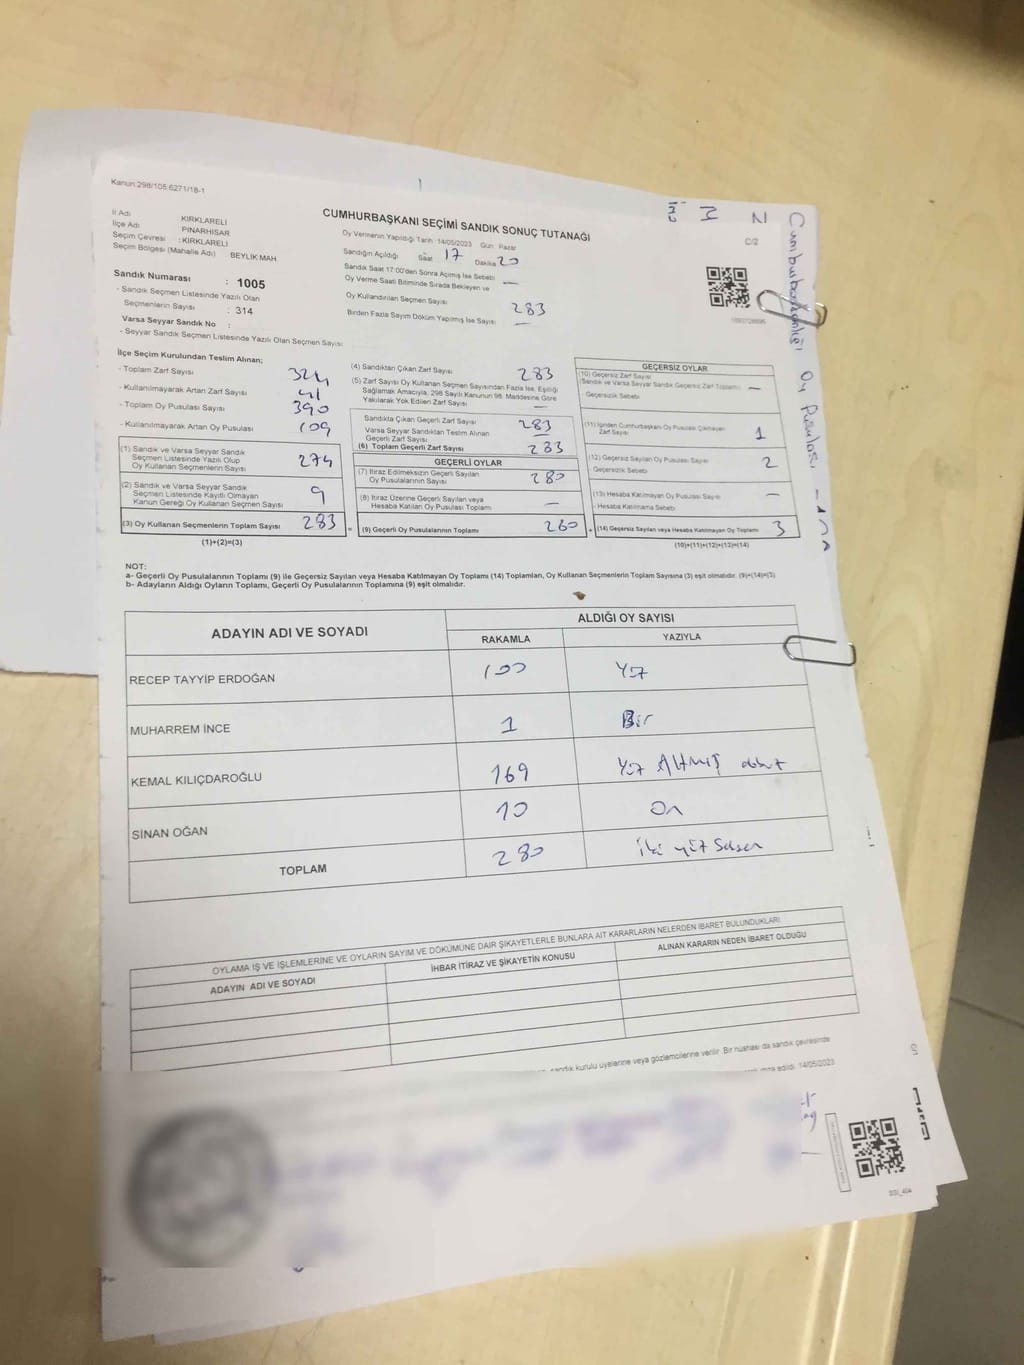 Kanun:298/105.6271/18-1
CUMHURBAŞKANI SEÇİMİ SANDIK SONUÇ TUTANAĞI
C/2
İl Adı KIRKLARELİ
İlçe Adı PINARHİSAR
Seçim Çevresi : KIRKLARELİ
Seçim Bölgesi (Mahalle Adı) BEYLİK MAH
Sandık Numarası : 1005
- Sandık Seçmen Listesinde Yazılı Olan
Seçmenlerin Sayısı : 314
Varsa Seyyar Sandık No :
- Seyyar Sandık Seçmen Listesinde Yazılı Olan Seçmen Sayısı
Oy Vermenin Yapıldığı Tarih :14/05/2023 Gün Pazar
Sandığın Açıldığı Saat 17 Dakika 20
Sandık Saat 17:00'den Sonra Açılmış İse Sebebi
Oy Verme Saati Bitiminde Sırada Bekleyen ve —
Oy Kullandırılan Seçmen Sayısı 283
Birden Fazla Sayım Döküm Yapılmış İse Sayısı —
İlçe Seçim Kurulundan Teslim Alınan;
- Toplam Zarf Sayısı 324
- Kullanılmayarak Artan Zarf Sayısı 41
- Toplam Oy Pusulası Sayısı 390
- Kullanılmayarak Artan Oy Pusulası 109
(1) Sandık ve Varsa Seyyar Sandık
Seçmen Listesinde Yazılı Olup
Oy Kullanan Seçmenlerin Sayısı 274
(2) Sandık ve Varsa Seyyar Sandık
Seçmen Listesinde Kayıtlı Olmayan
Kanun Gereği Oy Kullanan Seçmen Sayısı 9
(3) Oy Kullanan Seçmenlerin Toplam Sayısı 283
(1)+(2)=(3)
(4) Sandıktan Çıkan Zarf Sayısı 283
(5) Zarf Sayısı Oy Kullanan Seçmen Sayısından Fazla İse, Eşitliği
Sağlamak Amacıyla, 298 Sayılı Kanunun 98. Maddesine Göre
Yakılarak Yok Edilen Zarf Sayısı —
Sandıkta Çıkan Geçerli Zarf Sayısı 283
Varsa Seyyar Sandıktan Teslim Alınan
Geçerli Zarf Sayısı —
(6) Toplam Geçerli Zarf Sayısı 283
GEÇERLİ OYLAR
(7) İtiraz Edilmeksizin Geçerli Sayılan
Oy Pusulalarının Sayısı 280
(8) İtiraz Üzerine Geçerli Sayılan veya
Hesaba Katılan Oy Pusulası Toplamı —
= (9) Geçerli Oy Pusulalarının Toplamı 280
GEÇERSİZ OYLAR
(10) Geçersiz Zarf Sayısı
(Sandık ve Varsa Seyyar Sandık Geçersiz Zarf Toplamı) —
- Geçersizlik Sebebi
(11) İçinden Cumhurbaşkanı Oy Pusulası Çıkmayan
Zarf Sayısı 1
(12) Geçersiz Sayılan Oy Pusulası Sayısı 2
- Geçersizlik Sebebi
(13) Hesaba Katılmayan Oy Pusulası Sayısı —
- Hesaba Katılmama Sebebi
+ (14) Geçersiz Sayılan veya Hesaba Katılmayan Oy Toplamı 3
(10)+(11)+(12)+(13)=(14)
NOT:
a- Geçerli Oy Pusulalarının Toplamı (9) ile Geçersiz Sayılan veya Hesaba Katılmayan Oy Toplamı (14) Toplamları, Oy Kullanan Seçmenlerin Toplam Sayısına (3) eşit olmalıdır. (9)+(14)=(3)
b- Adayların Aldığı Oyların Toplamı, Geçerli Oy Pusulalarının Toplamına (9) eşit olmalıdır.
ADAYIN ADI VE SOYADI
ALDIĞI OY SAYISI
RAKAMLA YAZIYLA
RECEP TAYYİP ERDOĞAN 100 Yüz
MUHARREM İNCE 1 Bir
KEMAL KILIÇDAROĞLU 169 Yüz Altmış dokuz
SİNAN OĞAN 10 On
TOPLAM 280 İki yüz Seksen
OYLAMA İŞ VE İŞLEMLERİNE VE OYLARIN SAYIM VE DÖKÜMÜNE DAİR ŞİKAYETLERLE BUNLARA AİT KARARLARIN NELERDEN İBARET BULUNDUKLARI
ADAYIN ADI VE SOYADI İHBAR İTİRAZ VE ŞİKAYETİN KONUSU ALINAN KARARIN NEDEN İBARET OLDUĞU
sandık kurulu üyelerine veya gözlemcilerine verilir. Bir nüshası da sandık çevresinde
edildi. 14/05/2023
Cumhurbaşkanlığı Oy Pusulası